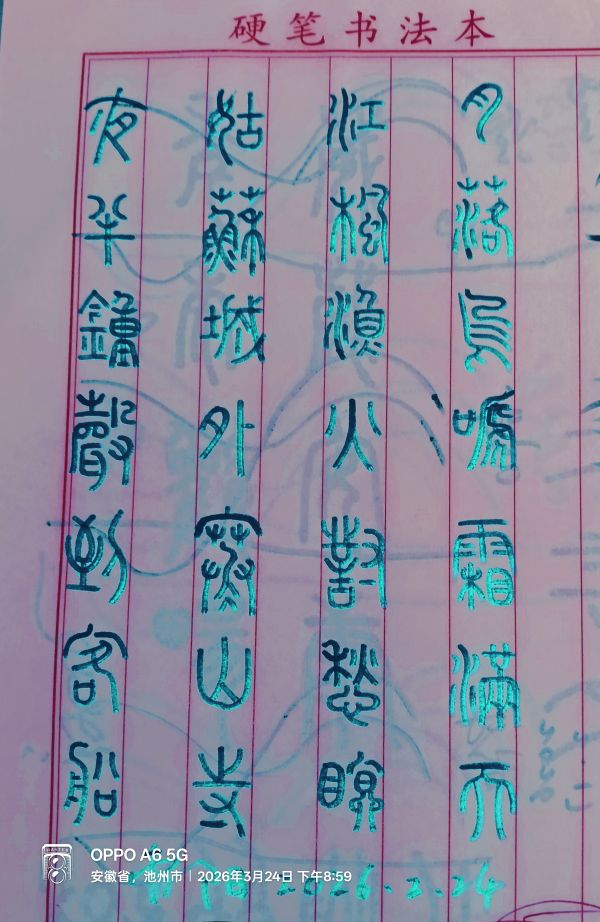 硬笔书法本
月落烏嗁霜滿天
江楓漁火對愁瞑
姑蘇城外寒山寺
夜半鐘聲到客船
2026.2.24
OPPO A6 5G
安徽省，池州市 | 2026年3月24日 下午8:59